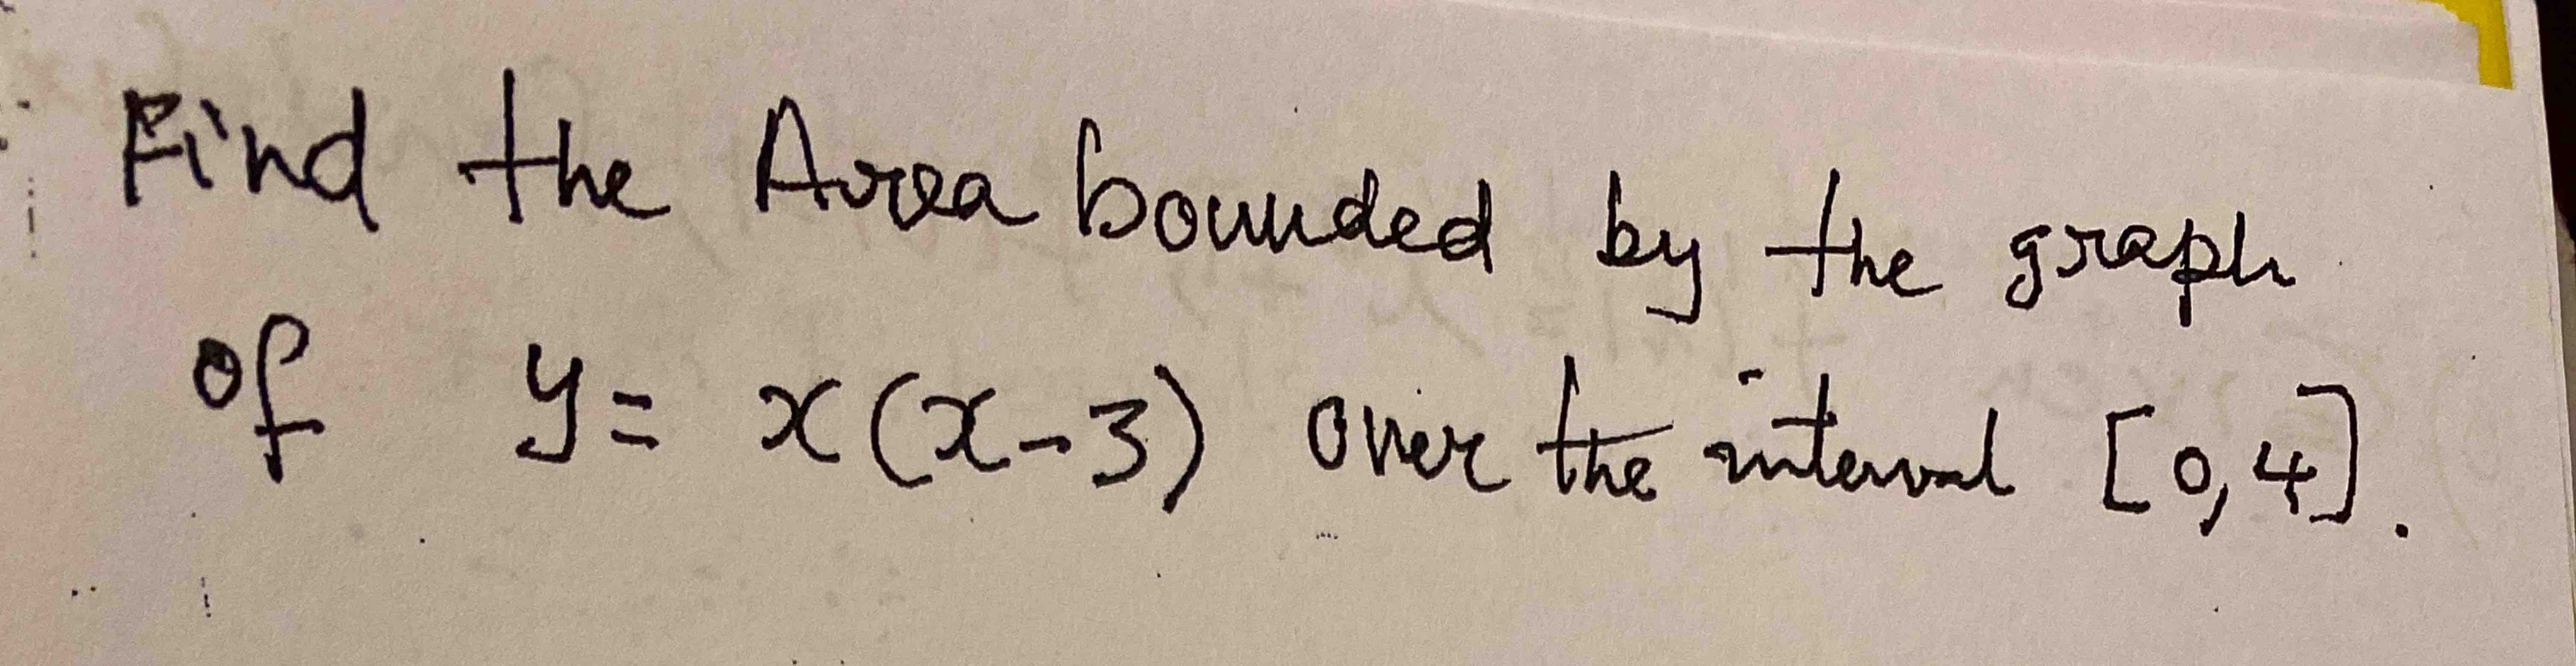 Find the Area bounded by the graph
of y= x(x-3) over the interval [0,4].